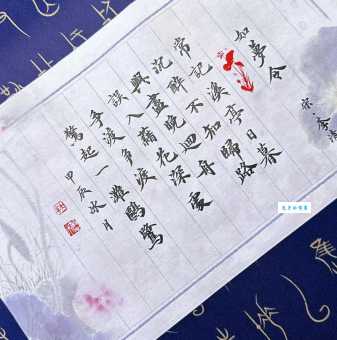 如夢令
宋 李清
常記溪亭日暮
沉醉不知歸路
興盡晚迴舟
誤入藕花深處
爭渡爭渡
驚起一灘鷗鷺
甲辰冰月